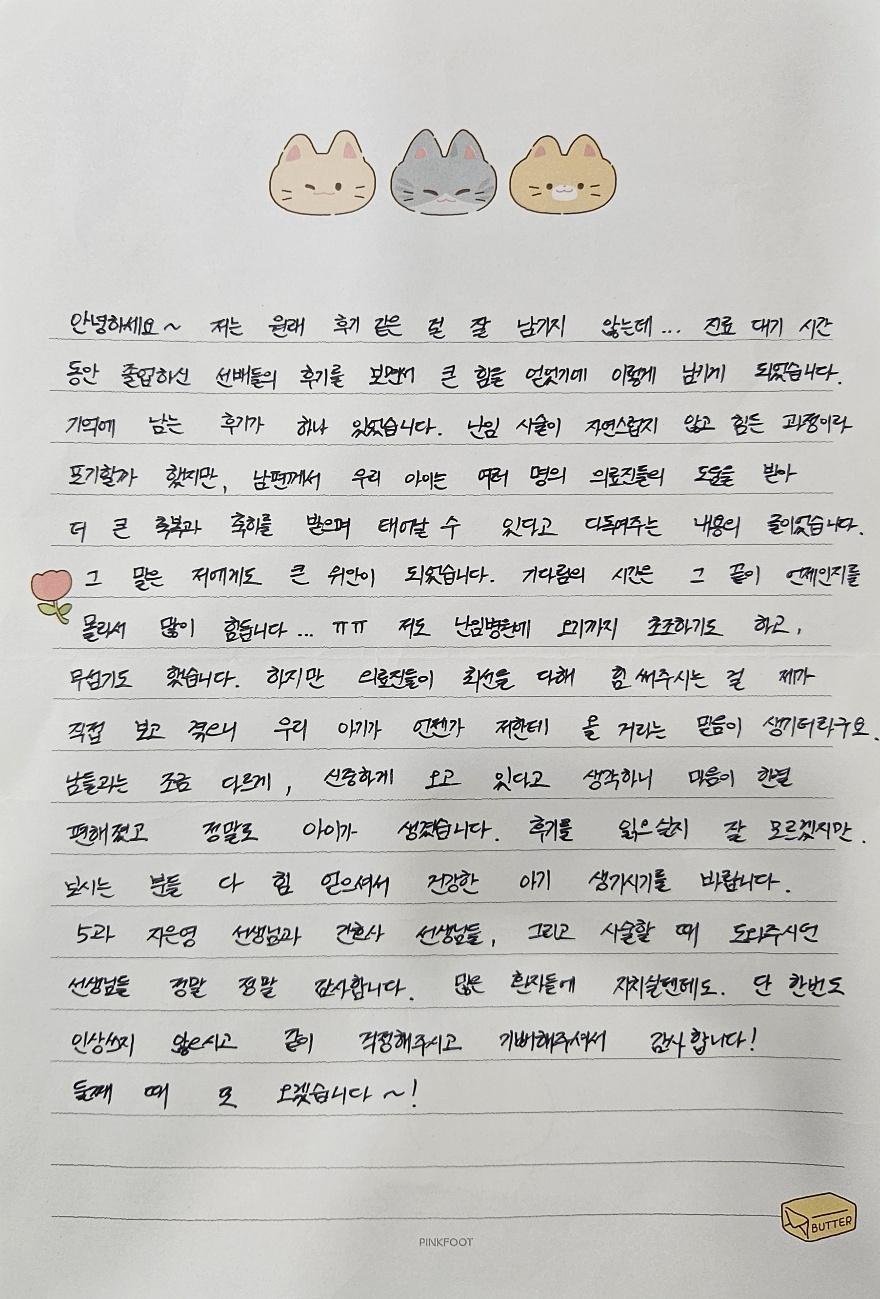 안녕하세요~ 저는 원래 후기 같은 걸 잘 남기지 않는데... 진료 대기 시간
동안 졸업하신 선배들의 후기를 보면서 큰 힘을 얻었기에 이렇게 남기게 되었습니다.
기억에 남는 후기가 하나 있었습니다. 난임 시술이 자연스럽지 않고 힘든 과정이라
포기할까 했지만, 남편께서 우리 아이는 여러 명의 의료진들의 도움을 받아
더 큰 축복과 축하를 받으며 태어날 수 있다고 다독여주는 내용의 글이었습니다.
그 말은 저에게도 큰 위안이 되었습니다. 기다림의 시간은 그 끝이 언제인지를
몰라서 많이 힘듭니다... ㅠㅠ 저도 난임병원에 오기까지 초조하기도 하고,
무섭기도 했습니다. 하지만 의료진들이 최선을 다해 힘 써주시는 걸 제가
직접 보고 겪으니 우리 아기가 언젠가 저한테 올 거라는 믿음이 생기더라구요.
남들과는 조금 다르게, 신중하게 오고 있다고 생각하니 마음이 한결
편해졌고 정말로 아이가 생겼습니다. 후기를 읽으실지 잘 모르겠지만.
보시는 분들 다 힘 얻으셔서 건강한 아기 생기시기를 바랍니다.
5과 지은영 선생님과 간호사 선생님들, 그리고 시술할 때 도와주시던
선생님들 정말 정말 감사합니다. 많은 환자들에 지치실텐데도. 단 한번도
인상쓰지 않으시고 같이 걱정해주시고 기뻐해주셔서 감사합니다!
둘째 때 또 오겠습니다~!
BUTTER
PINKFOOT